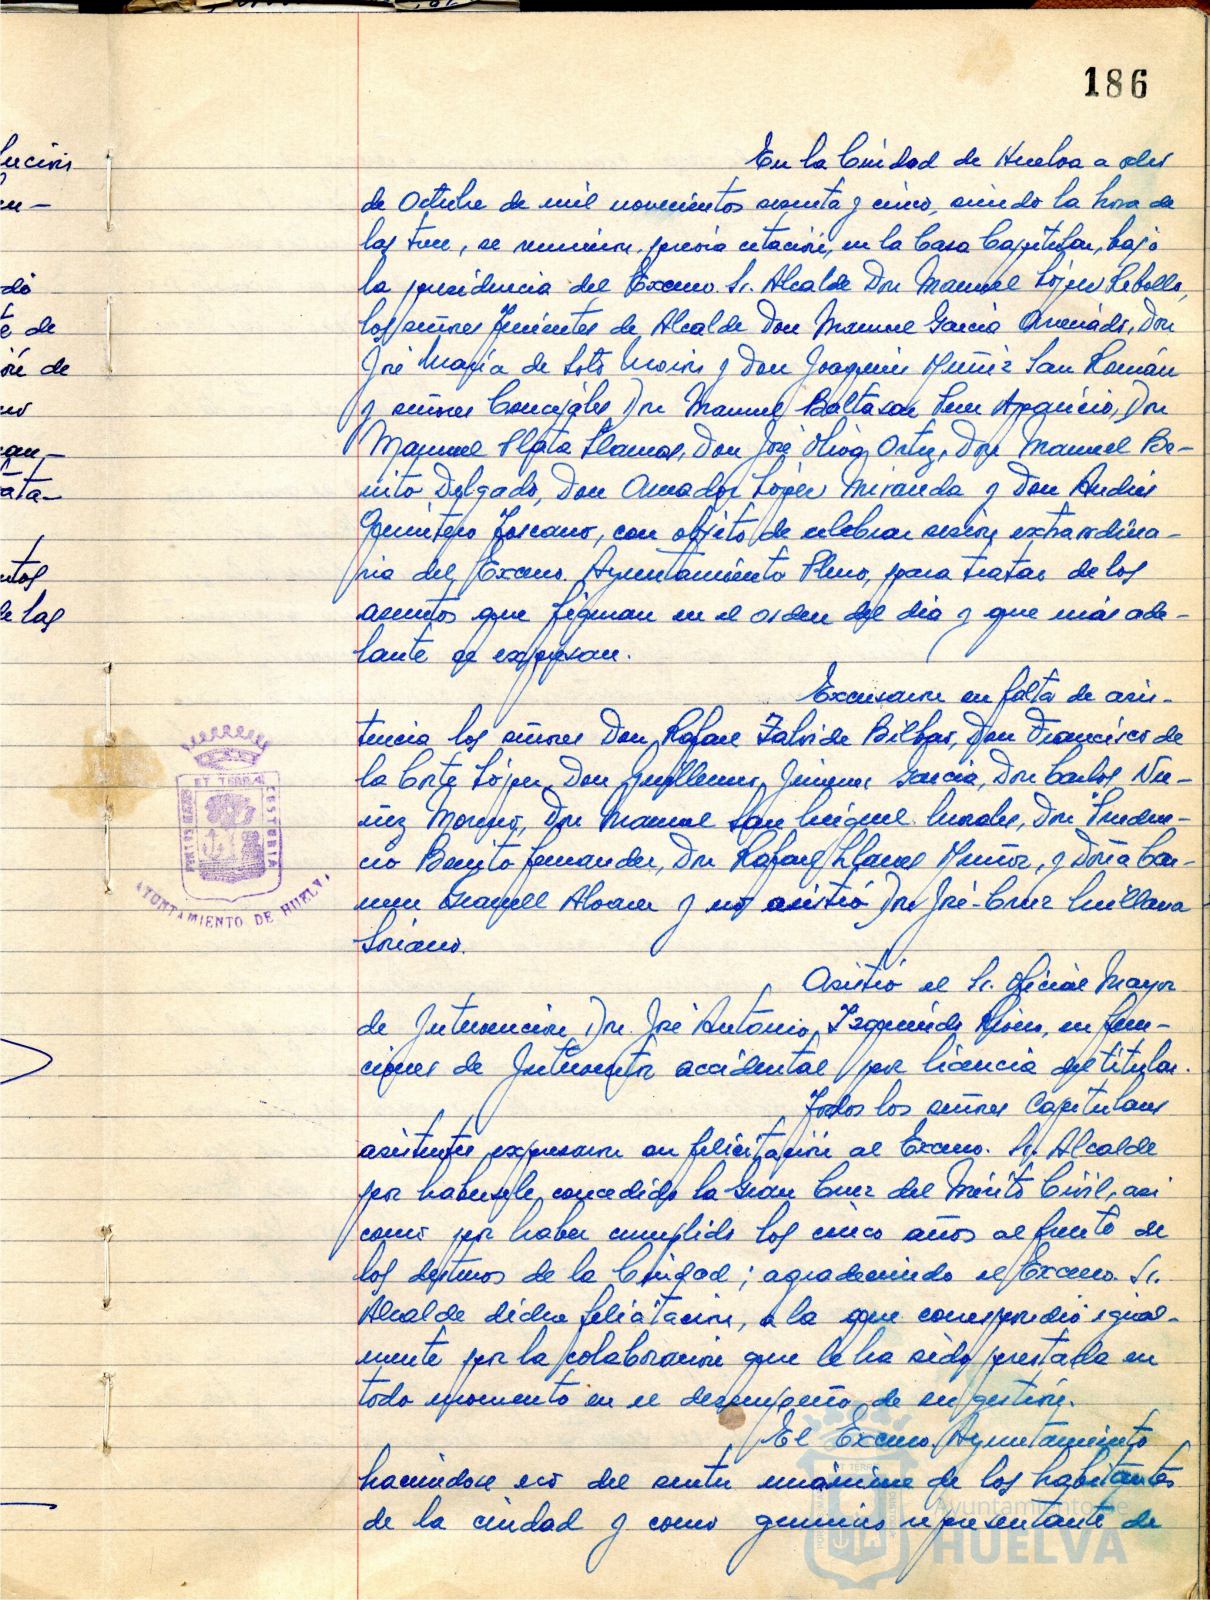 186
En la Ciudad de Huelva a
de Octubre de mil novecientos sesenta y cinco, siendo la hora de
las trece, se reunieron, previa citación, en la Casa Capitular, bajo
la presidencia del Excmo. Sr. Alcalde Don Manuel López Rebollo,
los señores Tenientes de Alcalde Don Manuel García Don
José María de Soto Morón y Don Joaquín Muñiz San Román
y señores Concejales Don Manuel Baltasar Aparicio, Don
Manuel Plata Llamas, Don José Oliva Ortiz, Don Manuel Be-
nito Delgado, Don Amador López Miranda y Don Andrés
Quintero Toscano, con objeto de celebrar sesión extraordina-
ria del Excmo. Ayuntamiento Pleno, para tratar de los
asuntos que figuran en el orden del día y que más ade-
lante se expresan.
Excusaron su falta de asis-
tencia los señores Don Rafael Zalvide Bilbao, Don Francisco de
la Corte López, Don Guillermo Jimenez García, Don Carlos Nú-
ñez Moreno, Don Manuel San Miguel Morales, Don Pruden-
cio Benito Fernandez, Don Rafael Llanes Muñoz, y Doña Car-
men Granell Alvarez y no asistió Don José-Cruz
Soriano.
Asistió el Sr. Oficial Mayor
de Intervención Don José Antonio Izquierdo en fun-
ciones de Interventor accidental por licencia del titular.
Todos los señores Capitulares
asistentes expresaron su felicitación al Excmo. Sr. Alcalde
por habersele concedido la Gran Cruz del Mérito Civil, asi
como por haber cumplido los cinco años al frente de
los destinos de la Ciudad; agradeciendo el Excmo. Sr.
Alcalde dicha felicitación, a la que correspondió igual-
mente por la colaboración que le ha sido prestada en
todo momento en el desempeño de su gestión.
El Excmo. Ayuntamiento
haciendose eco del sentir unánime de los habitantes
de la ciudad y como genuino representante de
AYUNTAMIENTO DE HUELVA
Ayuntamiento de
HUELVA